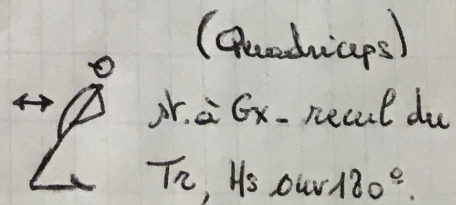 (Quadriceps)
St. à Gx - recul du
Tr, Hs ouv 180°.